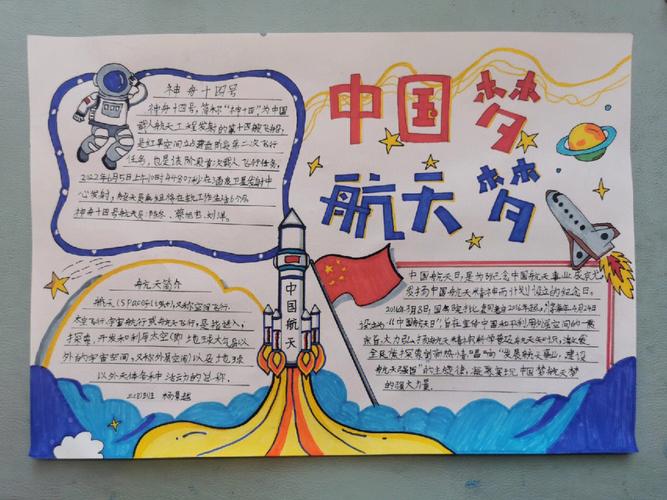 中国梦
航天梦
神舟十四号
神舟十四号，简称“神十四”为中国
载人航天工程发射的第十四艘飞船，
是红军空间站建造阶段第二次飞行
任务，也是该阶段首次载人飞行任务，
2022年6月5日上午10时44分07秒在酒泉卫星发射中
心发射，航天员乘组将在轨工作生活6个月
神舟十四号航天员：陈冬、蔡旭哲、刘洋。
航天简介
航天（Spaceflight），又称空间飞行、
太空飞行、宇宙航行或航天飞行，是指进入、
探索、开发和利用太空（即地球大气层以
外的宇宙空间，又称外层空间）以及地球
以外天体各种活动的总称。
中国航天
中国航天日，是为纪念中国航天事业成就
发扬中国航天精神而计划设立的纪念日。
2016年3月8日，国务院批复同意自2016年起，将每年4月24日
设立为“中国航天日”，旨在宣传中国和平利用外层空间的一贯
宗旨，大力弘扬航天精神科学普及航天知识，激发
全民族探索创新热情唱响“发展航天事业，建设
航天强国”的主旋律，凝聚实现中国梦航天梦
的强大力量。